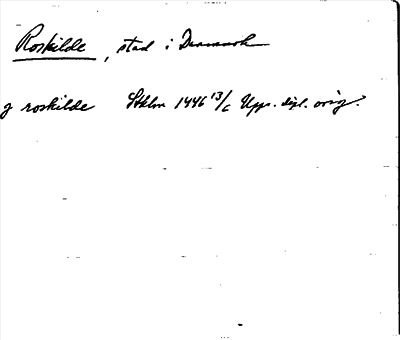 Roskilde, stad i Danmark
j roskilde Sthlm 1446 13/6 Upps. dipl. orig.